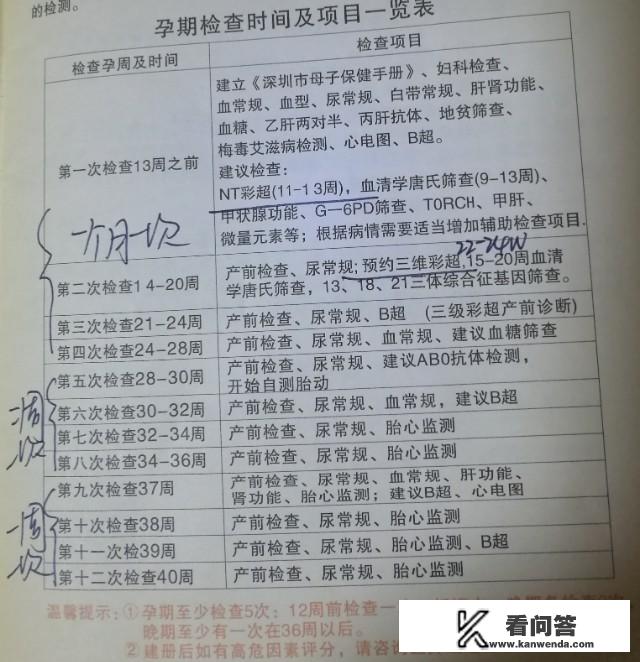 的检测。
孕期检查时间及项目一览表
检查孕周及时间
检查项目
第一次检查13周之前
建立《深圳市母子保健手册》、妇科检查、
血常规、血型、尿常规、白带常规、肝肾功能、
血糖、乙肝两对半、丙肝抗体、地贫筛查、
梅毒艾滋病检测、心电图、B超。
建议检查:
NT彩超(11-13周),血清学唐氏筛查(9-13周)、
甲状腺功能、G—6PD筛查、T0RCH、甲肝、
微量元素等;根据病情需要适当增加辅助检查项目.
一个月一次
22-24W
第二次检查14-20周
产前检查、尿常规;预约三维彩超,15-20周血清
学唐氏筛查,13、18、21三体综合征基因筛查。
第三次检查21-24周
产前检查、尿常规、B超 (三级彩超产前诊断)
第四次检查24-28周
产前检查、尿常规、血常规、建议血糖筛查
第五次检查28-30周
产前检查、尿常规、建议AB0抗体检测,
开始自测胎动
二周一次
第六次检查30-32周
产前检查、尿常规、血常规,建议B超
第七次检查32-34周
产前检查、尿常规、胎心监测
第八次检查34-36周
产前检查、尿常规、胎心监测
第九次检查37周
产前检查、尿常规、血常规、肝功能、
肾功能、胎心监测;建议B超、心电图
一周一次
第十次检查38周
产前检查、尿常规、胎心监测
第十一次检39周
产前检查、尿常规、胎心监测、B超
第十二次检查40周
产前检查、尿常规、胎心监测
温馨提示:①孕期至少检查5次:12周前检查一
晚期至少有一次在36周以后。
②建册后如有高危因素评分,请咨
看问答
www.kanwenda.com